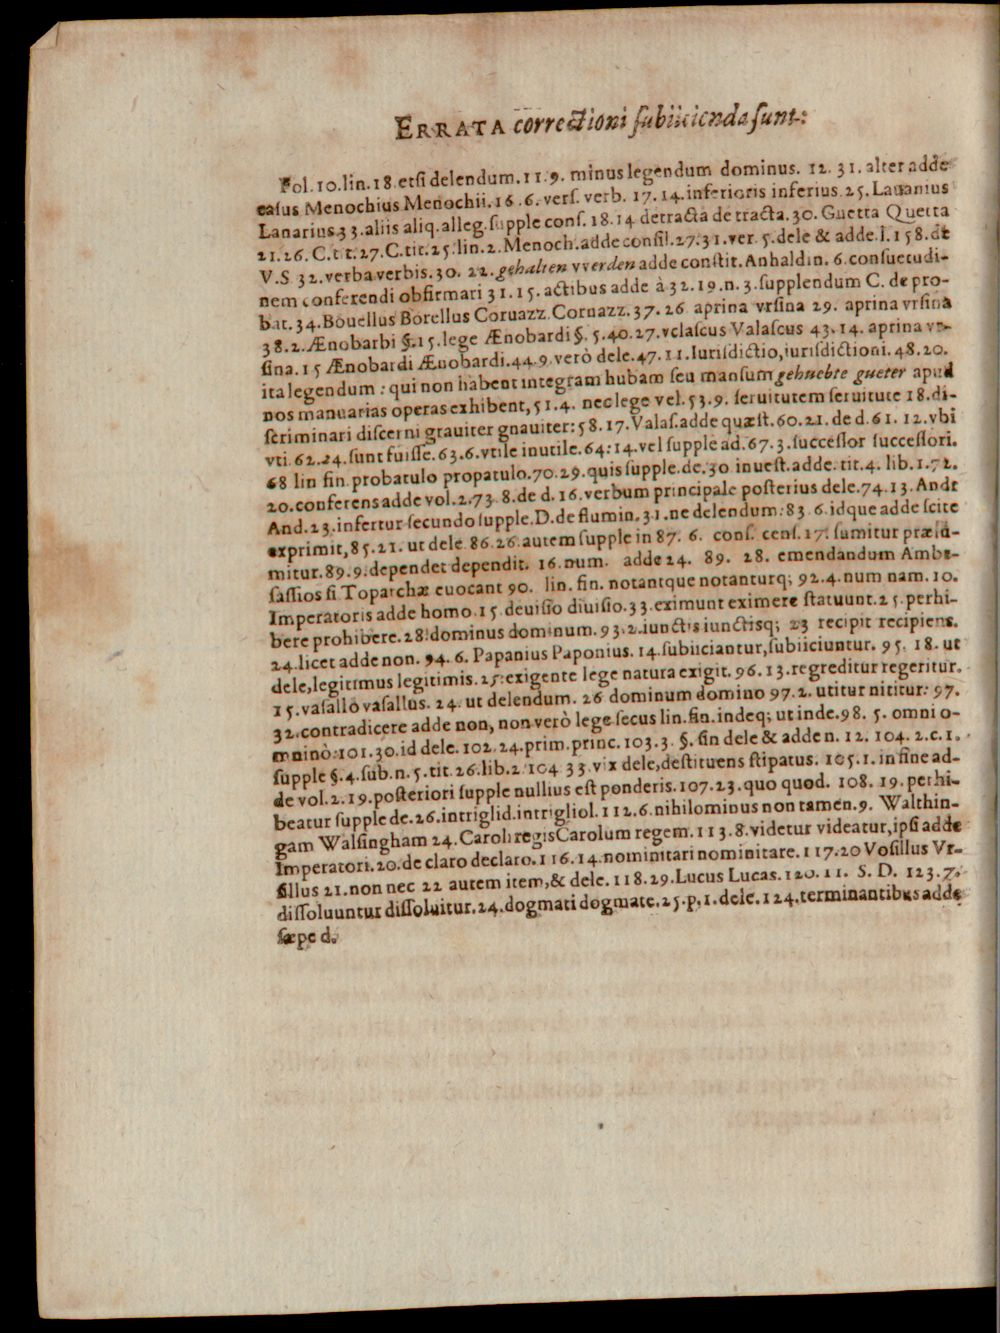 ERRATA correctioni subiicienda sunt:
Fol. 10. lin. 18. etsi delendum. 11. 9. minus legendum dominus. 12. 31. alter adde
casus Menochius Menochii. 16. 6. vers. verb. 17. 14. inferioris inferius 25. Lauanius
Lanarius 33. aliis aliq. alleg. supple cons. 18. 14 detracta de tracta. 30. Guetta Quetta
21. 26. C. t t. 27. C. tit. 25. lin. 2. Menoch. adde consil. 27. 31. ver. 5. dele & adde. l. 158. de
V. S 32. verba verbis. 30. 22. gehalten vverden adde constit. Anhaldin. 6. consuetudi-
nem conferendi obfirmari 31. 15. actibus adde à 32. 19. n. 3. supplendum C. de pro-
bat. 34. Bouellus Borellus Coruazz. Cornazz. 37. 26 aprina vrsina 29. aprina vrsina
38. 2. Ænobarbi §. 15. lege Ænobardi §. 5. 40. 27. velascus Valascus 43. 14. aprina vr-
sina. 15 Ænobardi Ænobardi. 44. 9. verò dele. 47. 11. Iurisdictio, iurisdictioni. 48. 20.
ita legendum: qui non habent integram hubam seu mansum gehuebte gueter apud
nos manuarias operas exhibent, 51. 4. nec lege vel. 53. 9. seruitutem seruitute 18. di-
scriminari discerni grauiter gnauiter: 58. 17. Valas. adde quæst. 60. 21. de d. 61. 12. vbi
vti. 62. 24. sunt fuisse. 63. 6. vtile inutile. 64: 14. vel supple ad. 67. 3. successor successori.
68 lin fin. probatulo propatulo. 70. 29. quis supple. de. 30 inuest. adde. tit. 4. lib. 1. 72.
20. conferens adde vol. 2. 73 8. de d. 16. verbum principale posterius dele. 74. 13. Andr
And. 23. infertur secundo supple. D. de flumin. 31. ne delendum: 83 6. idque adde scite
exprimit, 85. 21. ut dele 86. 26. autem supple in 87. 6. cons. cens. 17. sumitur præsu-
mitur. 89. 9. dependet dependit. 16. num. adde 24. 89. 28. emendandum Ambe-
sassios si Toparchæ euocant 90. lin. fin. notantque notanturq; 92. 4. num nam. 10.
Imperatoris adde homo. 15 deuisio diuisio. 33. eximunt eximere statuunt. 25. perhi-
bere prohibere. 28. dominus dominum. 93. 2. iunctis iunctisq; 23 recipit recipiens.
24. licet adde non. 94. 6. Papanius Paponius. 14. subiiciantur, subiiciuntur. 95. 18. ut
dele, legitimus legitimis. 25: exigente lege natura exigit. 96. 13. regreditur regeritur.
15. vasallo vasallus. 24. ut delendum. 26 dominum domino 97. 2. utitur nititur: 97.
32. contradicere adde non, non verò lege secus lin. fin. indeq; ut inde. 98. 5. omni o-
mninò: 101. 30. id dele. 102. 24. prim. princ. 103. 3. §. fin dele & adde n. 12. 104. 2. c. 1.
supple §. 4. sub. n. 5. tit. 26. lib. 2 104 33. vix dele, destituens stipatus. 105. 1. in fine ad-
de vol. 2. 19. posteriori supple nullius est ponderis. 107. 23. quo quod. 108. 19. perhi-
beatur supple de. 26. intriglid. intrigliol. 112. 6. nihilominus non tamen. 9. Walthin-
gam Walsingham 24. Caroli regis Carolum regem. 113. 8. videtur videatur, ipsi adde
Imperatori. 20. de claro declaro. 116. 14. nominitari nominitare. 117. 20 Vosillus Vr-
sillus 21. non nec 22 autem item, & dele. 118. 29. Lucus Lucas. 120. 11. S. D. 123. 7.
dissoluuntur dissoluitur. 24. dogmati dogmate. 25. p. 1. dele. 124. terminantibus adde
sæpe d.